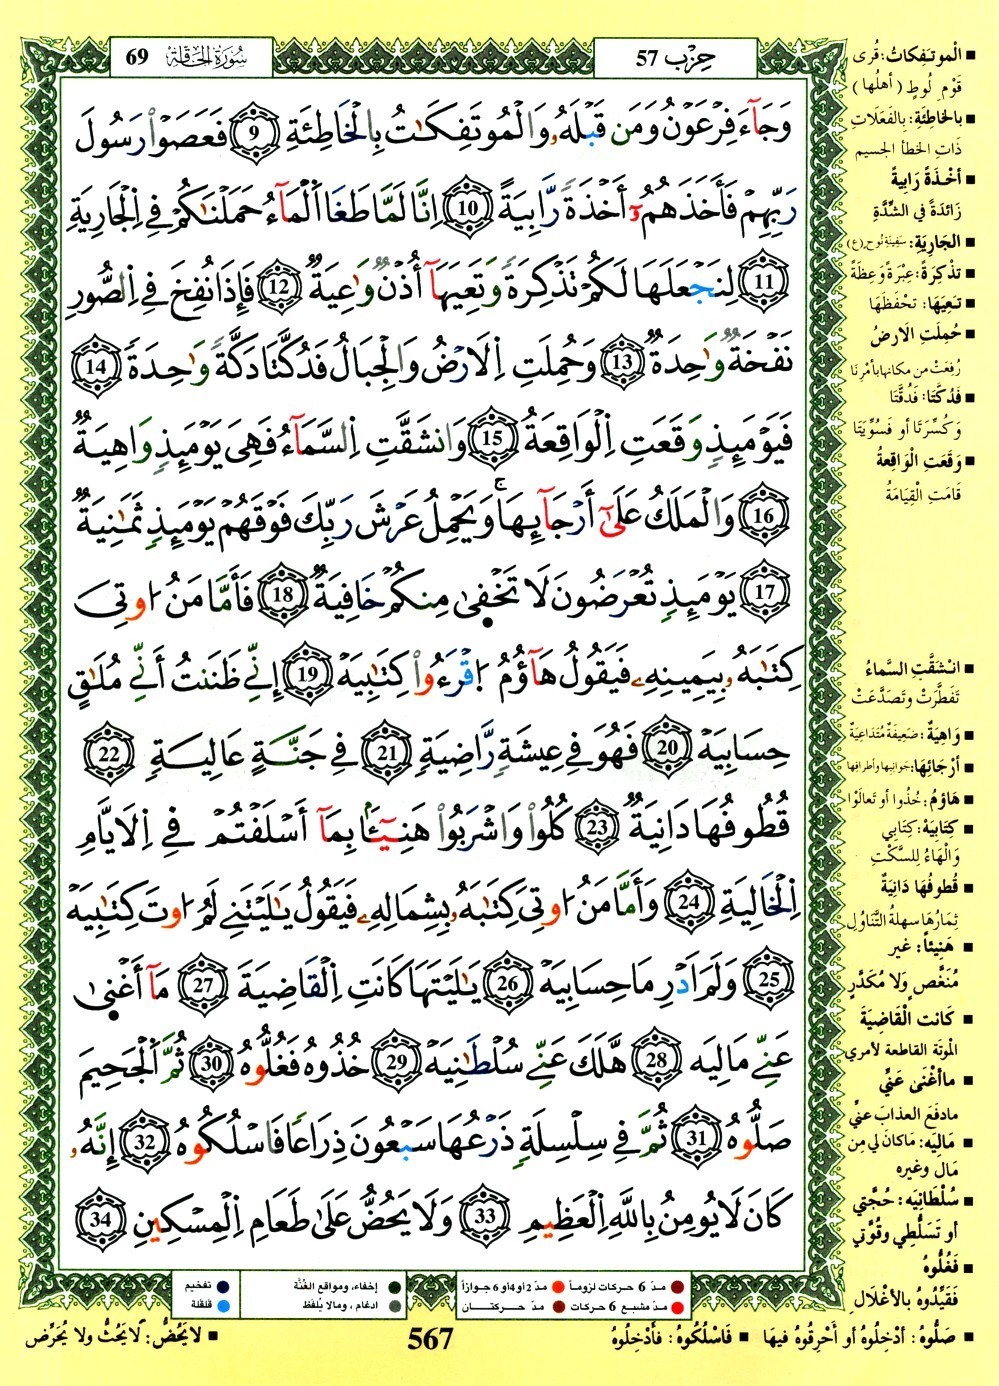 سُورَةُ الحَاقَّة 69
حِزْب 57
وَجَآءَ فِرْعَوْنُ وَمَن قَبْلَهُۥ وَالْمُوتَفِكَٰتُ بِالْخَاطِئَةِ 9 فَعَصَوْا رَسُولَ
رَبِّهِمْ فَأَخَذَهُمُۥٓ أَخْذَةً رَّابِيَةً 10 اِنَّا لَمَّا طَغَا اَلْمَآءُ حَمَلْنَٰكُمْ فِي اِلْجَارِيَةِ
11 لِنَجْعَلَهَا لَكُمْ تَذْكِرَةً وَتَعِيَهَآ أُذُنٌ وَٰعِيَةٌ 12 فَإِذَا نُفِخَ فِي اِلصُّورِ
نَفْخَةٌ وَٰحِدَةٌ 13 وَحُمِلَتِ اِلَارْضُ وَالْجِبَالُ فَدُكَّتَا دَكَّةً وَٰحِدَةً 14
فَيَوْمَئِذٍ وَقَعَتِ اِلْوَاقِعَةُ 15 وَانشَقَّتِ اِلسَّمَآءُ فَهِيَ يَوْمَئِذٍ وَاهِيَةٌ
16 وَالْمَلَكُ عَلَىٰٓ أَرْجَآئِهَا وَيَحْمِلُ عَرْشَ رَبِّكَ فَوْقَهُمْ يَوْمَئِذٍ ثَمَٰنِيَةٌ
17 يَوْمَئِذٍ تُعْرَضُونَ لَا تَخْفىٰ مِنكُمْ خَافِيَةٌ 18 فَأَمَّا مَنُ اوتِيَ
كِتَٰبَهُۥ بِيَمِينِهِۦ فَيَقُولُ هَآؤُمُ اُ قْرَءُوا كِتَٰبِيَهْ 19 إِنِّي ظَنَنتُ أَنِّي مُلَٰقٍ
حِسَابِيَهْ 20 فَهُوَ فِي عِيشَةٍ رَّاضِيَةٍ 21 فِي جَنَّةٍ عَالِيَةٍ 22
قُطُوفُهَا دَانِيَةٌ 23 كُلُوا وَاشْرَبُوا هَنِيٓـًٔا بِمَآ أَسْلَفْتُمْ فِي اِلَايَّامِ
اِلْخَالِيَةِ 24 وَأَمَّا مَنُ اوتِيَ كِتَٰبَهُۥ بِشِمَالِهِۦ فَيَقُولُ يَٰلَيْتَنِي لَمُ اوتَ كِتَٰبِيَهْ
25 وَلَمَ اَدْرِ مَا حِسَابِيَهْ 26 يَٰلَيْتَهَا كَانَتِ اِلْقَاضِيَةَ 27 مَآ أَغْنىٰ
عَنِّي مَالِيَه 28 هَّلَكَ عَنِّي سُلْطَٰنِيَهْ 29 خُذُوهُ فَغُلُّوهُ 30 ثُمَّ اَلْجَحِيمَ
صَلُّوهُ 31 ثُمَّ فِي سِلْسِلَةٍ ذَرْعُهَا سَبْعُونَ ذِرَاعًا فَاسْلُكُوهُ 32 إِنَّهُۥ
كَانَ لَا يُومِنُ بِاللَّهِ اِلْعَظِيمِ 33 وَلَا يَحُضُّ عَلَىٰ طَعَامِ اِلْمِسْكِينِ 34
■ الْموتَفِكَاتُ: قُرى
قَوْمِ لُوطٍ (أهلُها)
■ بالخاطِئَةِ: بِالفَعَلَاتِ
ذَاتِ الخطَأ الجسيم
■ أخْذَةً رَابِيةً
زَائدَةً في الشِّدَّةِ
■ الجَارِيَةِ: سَفِينَةِ نُوح(ع)
■ تذْكِرَةً: عِبْرَةً وَعِظَةً
■ تَعِيَهَا: تحْفَظَهَا
■ حُمِلَتِ الَارضُ
رُفِعَتْ من مكانها بأمْرِنَا
■ فَدُكَّتَا: فَدُقَّتَا
وَكُسِّرَتَا أو فَسُوِّيَتَا
■ وَقَعَتِ الْوَاقِعَةُ
قَامَتِ القِيَامَةُ
■ انْشَقَّتِ السَّماءُ
تَفَطَّرَتْ وتَصَدَّعَتْ
■ وَاهِيَةٌ: ضَعِيفَةٌ مُتَدَاعِيَةٌ
■ أرْجَائِهَا: جَوَانِبها وأطرافِها
■ هَاؤمُ: خُذُوا أو تَعَالَوْا
■ كِتابِيَهْ: كِتَابِي
وَالْهَاءُ لِلسَّكْتِ
■ قُطوفُهَا دَانِيَةٌ
ثِمَارُهَا سهلةُ التَّنَاوُلِ
■ هَنِيئاً: غير
مُنَغَّصٍ وَلَا مُكَدَّرٍ
■ كَانتِ الْقَاضِيَةَ
الموتَةَ القاطعة لأمري
■ ما أغْنَى عَنِّي
ما دفَعَ العذابَ عنِّي
■ مَالِيَه: مَا كَانَ لي مِن
مَال وغيره
■ سُلْطَانِيَه: حُجَّتي
أو تَسَلُّطِي وقُوَّتي
■ فَغُلُّوهُ
فَقَيِّدُوهُ بالأغْلَالِ
■ مدّ 6 حركات لزوماً ■ مدّ 2 أو 4 أو 6 جوازاً
■ مدّ مشبع 6 حركات ■ مدّ حركتان
■ إخفاء، ومواقع الغُنَّة
■ ادغام، وما لا يُلفظ
■ تفخيم
■ قلقلة
■ صَلُّوهُ: أدْخِلُوهُ أو أَحْرِقُوهُ فيهَا ■ فَاسْلُكُوهُ: فَأَدْخِلُوهُ
567
■ لَا يَحُضُّ: لَا يَحُثُّ ولا يُحَرِّض